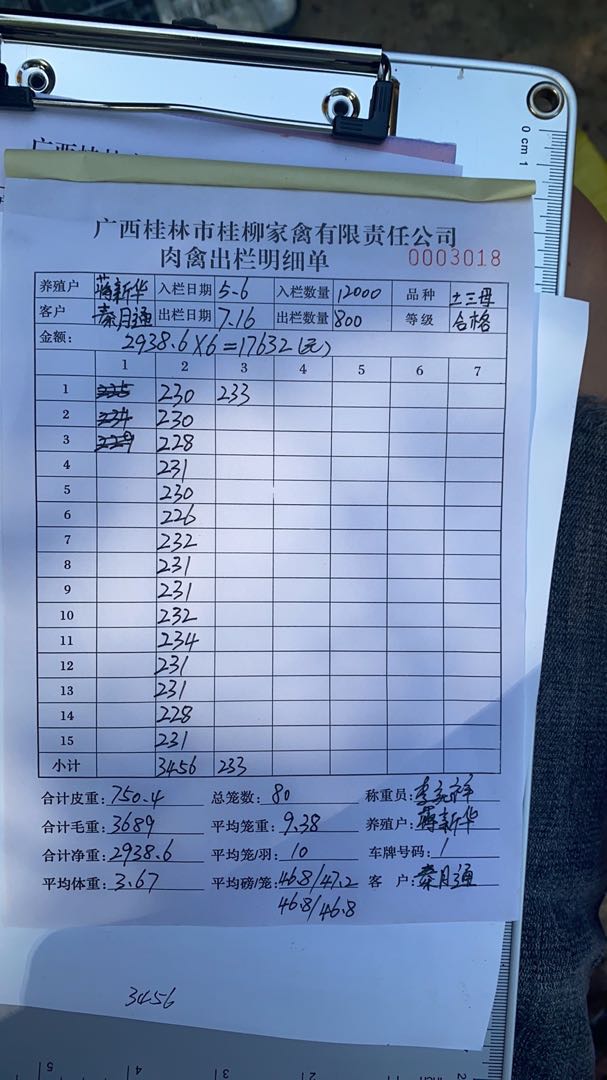 广西桂林市桂柳家禽有限责任公司
肉禽出栏明细单 0003018
养殖户 蒋新华 入栏日期 5-6 入栏数量 12000 品种 土三母
客户 秦月通 出栏日期 7.16 出栏数量 800 等级 合格
金额: 2938.6×6=17632(元)
1 2 3 4 5 6 7
1 225 230 233
2 234 230
3 229 228
4 231
5 230
6 226
7 232
8 231
9 231
10 232
11 234
12 231
13 231
14 228
15 231
小计 3456 233
合计皮重: 750.4 总笼数: 80 称重员:
合计毛重: 3689 平均笼重: 9.38 养殖户: 蒋新华
合计净重: 2938.6 平均笼/羽: 10 车牌号码: 1
平均体重: 3.67 平均磅/笼: 46.8/47.2 客 户: 秦月通
46.8/46.8
3456
0 cm 1